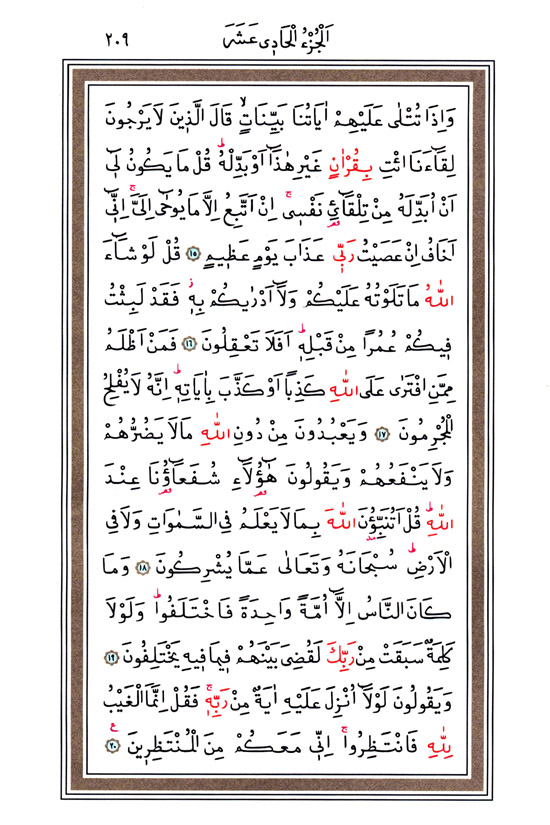 اَلْجُزْءُ الْحَادِي عَشَرَ ٢٠٩
وَاِذَا تُتْلٰى عَلَيْهِمْ اٰيَاتُنَا بَيِّنَاتٍۙ قَالَ الَّذٖينَ لَا يَرْجُونَ
لِقَٓاءَنَا ائْتِ بِقُرْاٰنٍ غَيْرِ هٰذَٓا اَوْ بَدِّلْهُؕ قُلْ مَا يَكُونُ لٖٓي
اَنْ اُبَدِّلَهُ مِنْ تِلْقَٓائِ۬ نَفْسٖيۚ اِنْ اَتَّبِعُ اِلَّا مَا يُوحٰٓى اِلَيَّۚ اِنّٖٓي
اَخَافُ اِنْ عَصَيْتُ رَبّٖي عَذَابَ يَوْمٍ عَظٖيمٍ ﴿١٥﴾ قُلْ لَوْ شَٓاءَ
اللّٰهُ مَا تَلَوْتُهُ عَلَيْكُمْ وَلَٓا اَدْرٰيكُمْ بِهٖؗ فَقَدْ لَبِثْتُ
فٖيكُمْ عُمُراً مِنْ قَبْلِهٖؕ اَفَلَا تَعْقِلُونَ ﴿١٦﴾ فَمَنْ اَظْلَمُ
مِمَّنِ افْتَرٰى عَلَى اللّٰهِ كَذِباً اَوْ كَذَّبَ بِاٰيَاتِهٖؕ اِنَّهُ لَا يُفْلِحُ
الْمُجْرِمُونَ ﴿١٧﴾ وَيَعْبُدُونَ مِنْ دُونِ اللّٰهِ مَا لَا يَضُرُّهُمْ
وَلَا يَنْفَعُهُمْ وَيَقُولُونَ هٰٓؤُ۬لَٓاءِ شُفَعَٓاؤُ۬نَا عِنْدَ
اللّٰهِؕ قُلْ اَتُنَبِّؤُ۫نَ اللّٰهَ بِمَا لَا يَعْلَمُ فِي السَّمٰوَاتِ وَلَا فِي
الْاَرْضِؕ سُبْحَانَهُ وَتَعَالٰى عَمَّا يُشْرِكُونَ ﴿١٨﴾ وَمَا
كَانَ النَّاسُ اِلَّٓا اُمَّةً وَاحِدَةً فَاخْتَلَفُواؕ وَلَوْلَا
كَلِمَةٌ سَبَقَتْ مِنْ رَبِّكَ لَقُضِيَ بَيْنَهُمْ فٖيمَا فٖيهِ يَخْتَلِفُونَ ﴿١٩﴾
وَيَقُولُونَ لَوْلَٓا اُنْزِلَ عَلَيْهِ اٰيَةٌ مِنْ رَبِّهٖۚ فَقُلْ اِنَّمَا الْغَيْبُ
لِلّٰهِ فَانْتَظِرُواۚ اِنّٖي مَعَكُمْ مِنَ الْمُنْتَظِرٖينَ ﴿٢٠﴾ ع